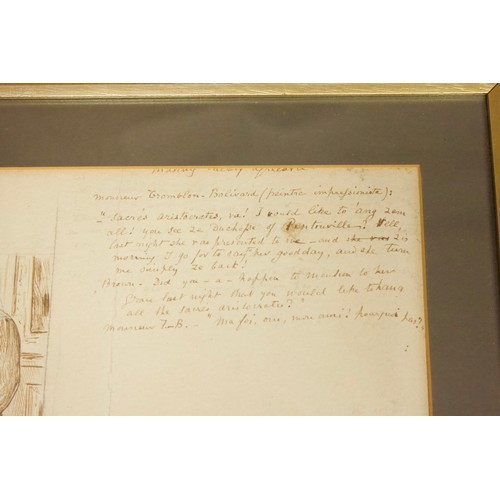 Monsieur Tromblon-Bolivard (peintre impressioniste):
"Sacrés aristocrates, va! I would like to 'ang zem
all! you see ze Duchess of Pentonville? Well,
last night she vas presented to me – and she was zis
morning I go for to say her good day, and she turn
me simply ze back!
Brown. Did you – a – happen to mention to her
Grace last night that you would like to hang
all the sacrés aristocrates?"
Monsieur T.B. – "Ma foi, oui, mon ami! pourquoi pas?"